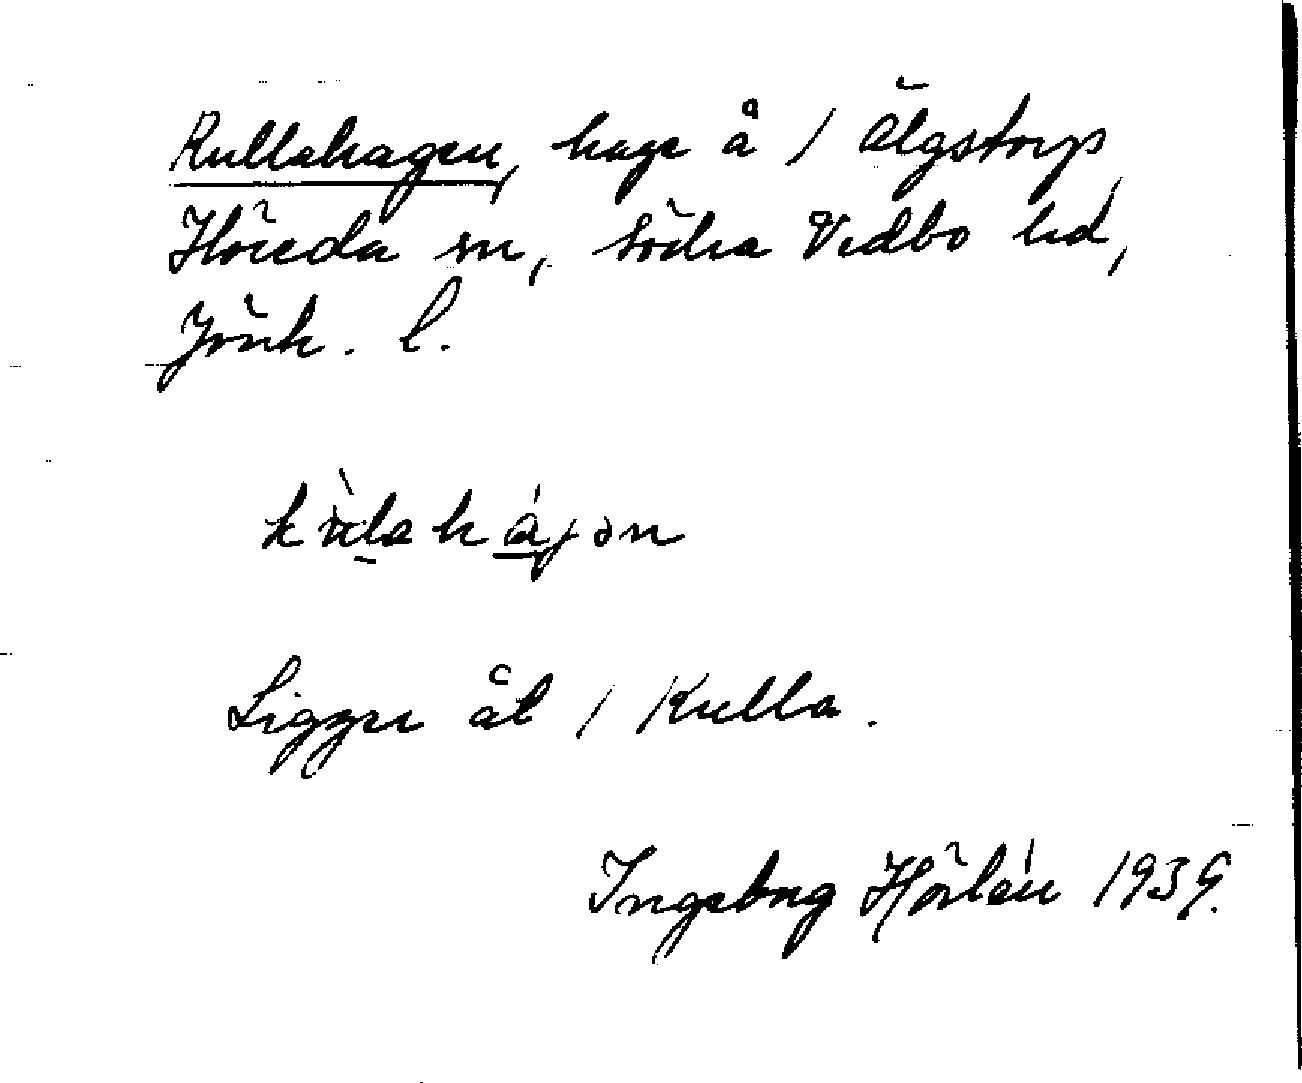 Kullahagen, hage å / Älgstorp
Höreda sn, Södra Vedbo hd,
Jönk. l.
kùlahájən
Ligger åt / Kulla.
Ingeborg Hörlén 1939.